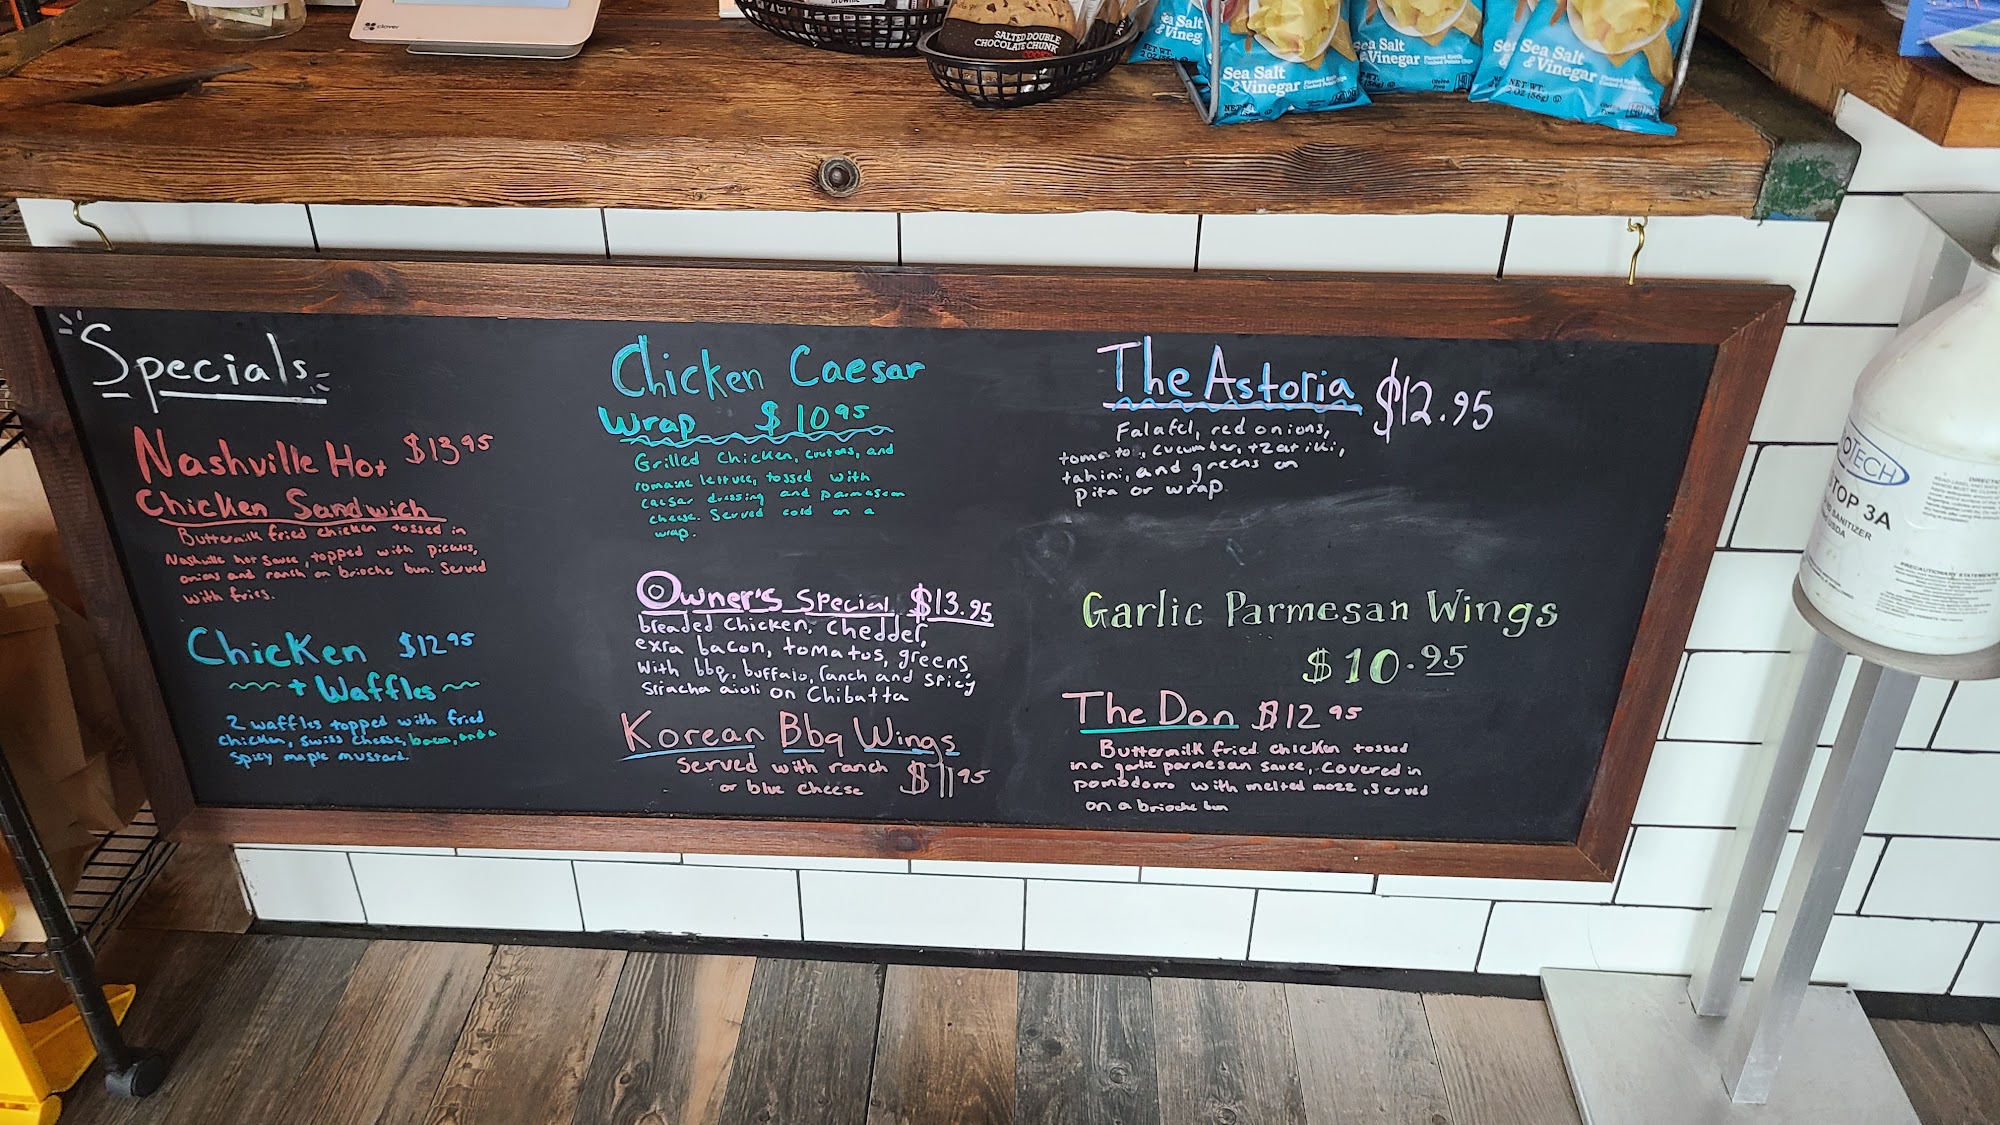 clover
SALTED DOUBLE
CHOCOLATE CHUNK
Sea Salt
& Vinegar
Sea Salt
& Vinegar
Sea Salt
& Vinegar
Sea Salt
& Vinegar
Specials
Nashville Hot $13 95
Chicken Sandwich
Buttermilk fried chicken tossed in
Nashville hot sauce, topped with pickles,
onions and ranch on brioche bun. Served
with fries.
Chicken $12 95
+ Waffles
2 waffles topped with fried
chicken, swiss cheese, bacon, and a
spicy maple mustard.
Chicken Caesar
Wrap $10 95
Grilled chicken, crutons, and
romaine lettuce, tossed with
caesar dressing and parmasean
cheese. Served cold on a
wrap.
Owner's Special $13.95
breaded chicken, chedder,
extra bacon, tomatos, greens
with bbq, buffalo, ranch and spicy
sriracha aioli on Chibatta
Korean Bbq Wings
Served with ranch $11 95
or blue cheese
The Astoria $12.95
Falafel, red onions,
tomato, cucumber, tzatziki,
tahini, and greens on
pita or wrap
Garlic Parmesan Wings
$10.95
The Don $12 95
Buttermilk fried chicken tossed
in a garlic parmesan sauce, covered in
pomodorro with melted mozz, served
on a brioche bun
TECH
STOP 3A
SANITIZER
USDA
PRECAUTIONARY STATEMENTS